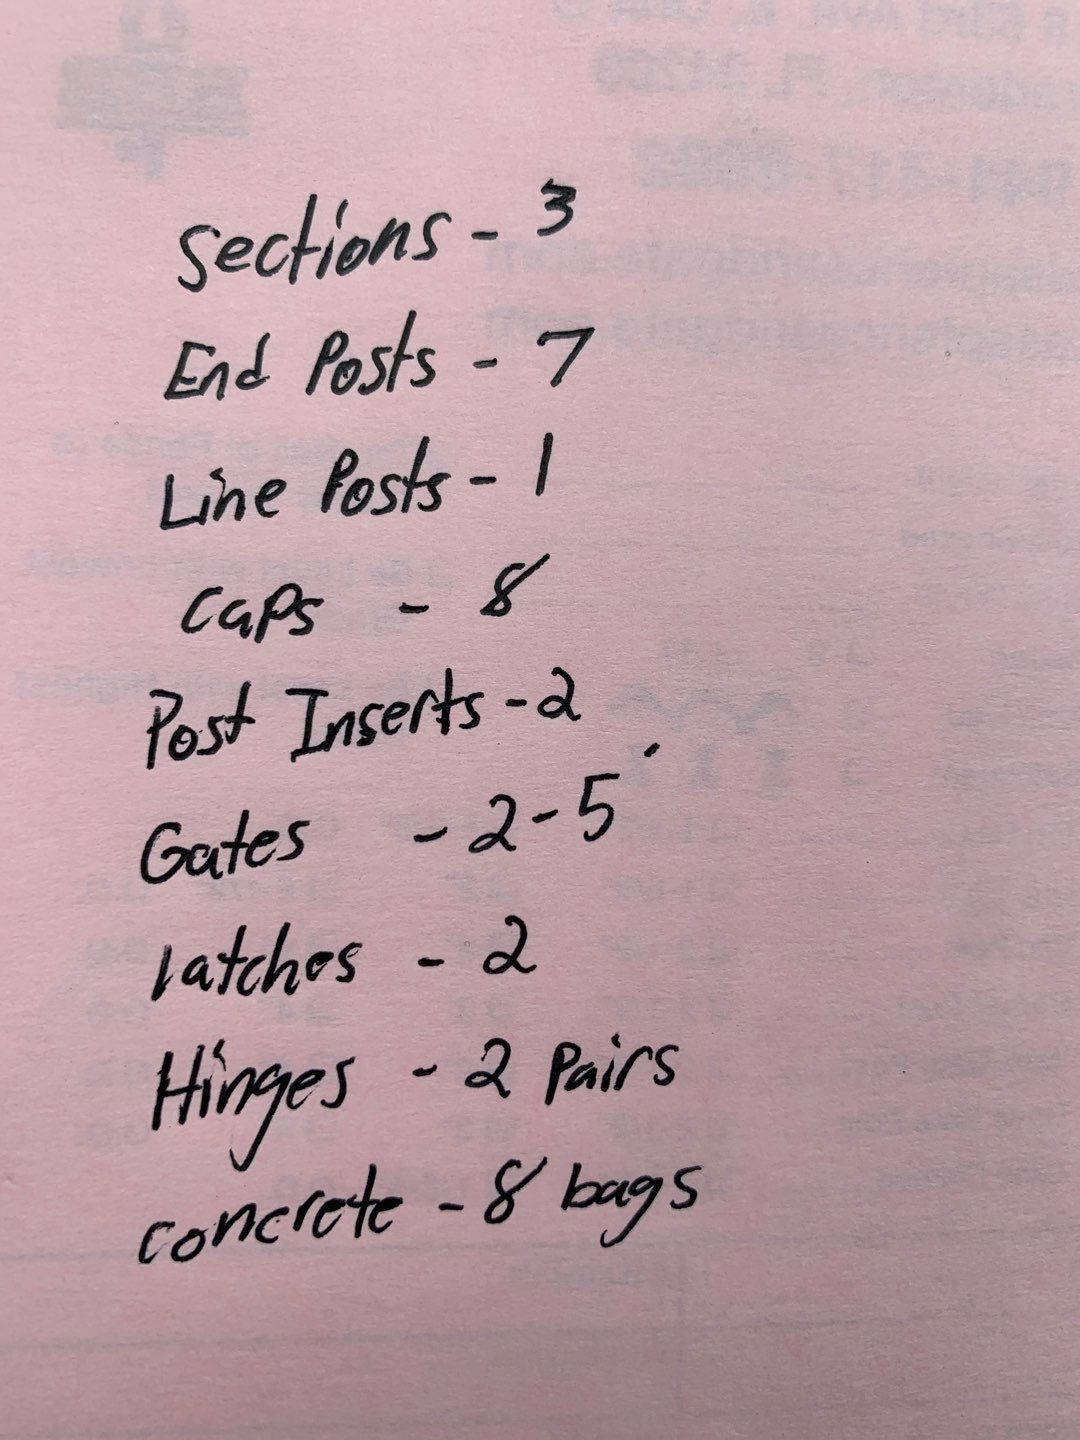 Sections - 3
End Posts - 7
Line Posts - 1
Caps - 8
Post Inserts - 2
Gates - 2 - 5'
Latches - 2
Hinges - 2 Pairs
Concrete - 8 bags